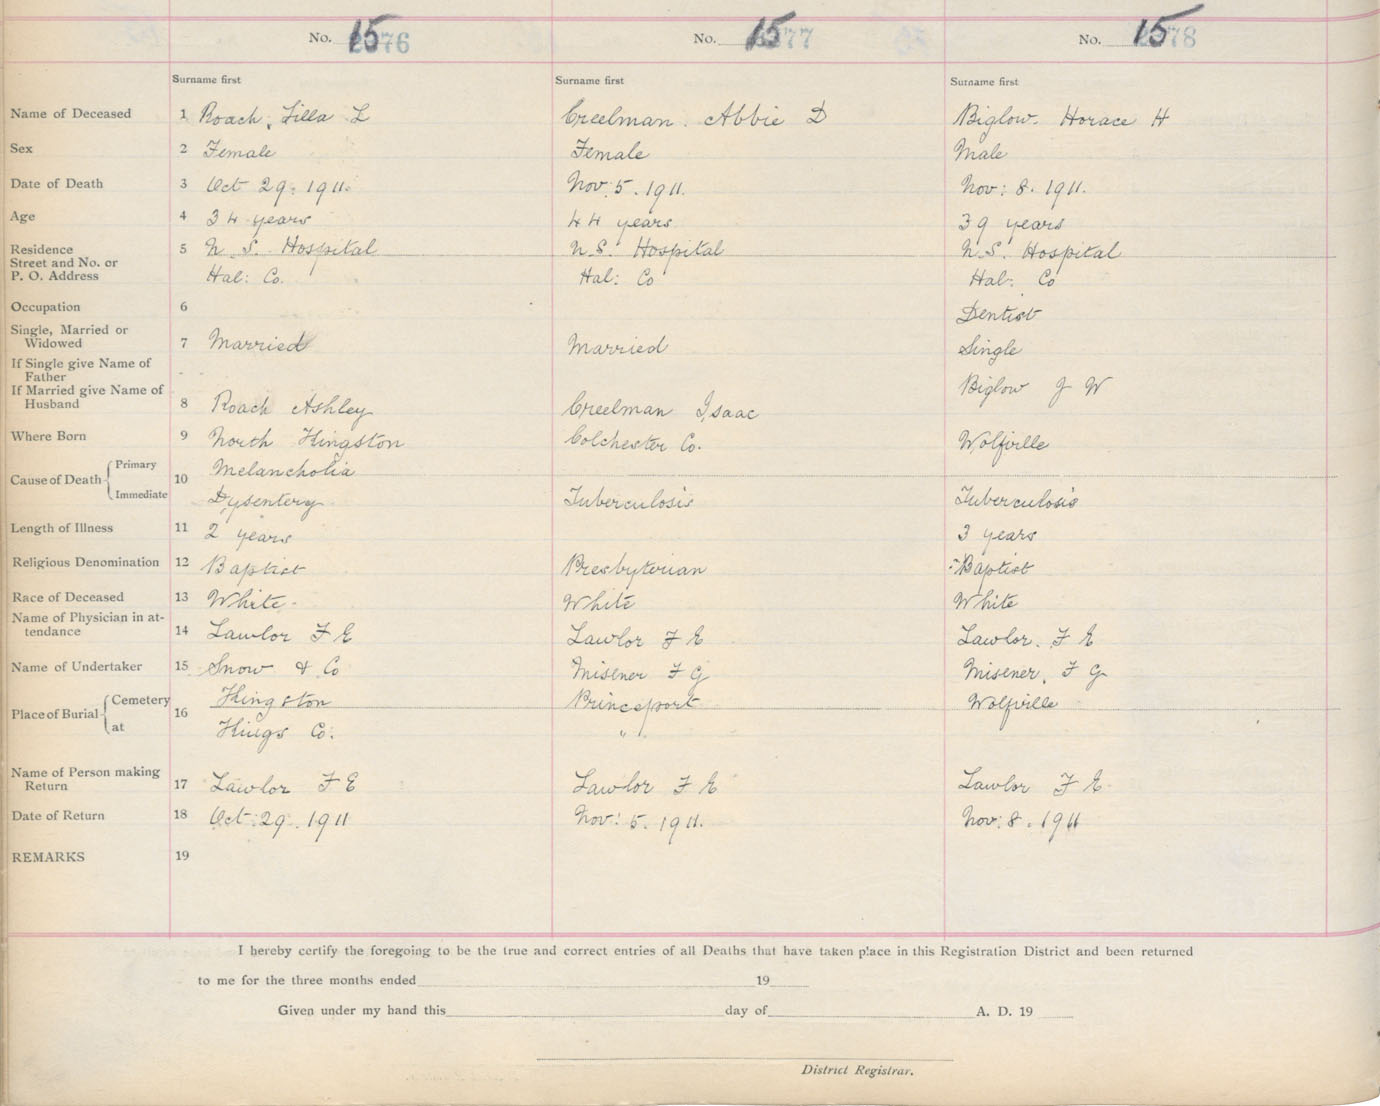 No. 15 2376 No. 15 77 No. 15 78
Surname first Surname first Surname first
Name of Deceased 1 Roach, Lilla L Creelman. Abbie D Biglow. Horace H
Sex 2 Female Female Male
Date of Death 3 Oct 29. 1911. Nov. 5. 1911. Nov: 8. 1911.
Age 4 34 years 44 years 39 years
Residence 5 N. S. Hospital N. S. Hospital N. S. Hospital
Street and No. or
P. O. Address Hal: Co. Hal: Co Hal: Co
Occupation 6 Dentist
Single, Married or
Widowed 7 Married Married Single
If Single give Name of
Father Biglow J W
If Married give Name of
Husband 8 Roach Ashley Creelman Isaac
Where Born 9 North Kingston Colchester Co. Wolfville
Cause of Death 10 Primary Melancholia
Immediate Dysentery Tuberculosis Tuberculosis
Length of Illness 11 2 years 3 years
Religious Denomination 12 Baptist Presbyterian Baptist
Race of Deceased 13 White White White
Name of Physician in at-
tendance 14 Lawlor F E Lawlor F E Lawlor. F E
Name of Undertaker 15 Snow & Co Misener F G Misener, F G
Place of Burial 16 Cemetery Kingston Princeport Wolfville
at Kings Co. "
Name of Person making
Return 17 Lawlor F E Lawlor F E Lawlor F E
Date of Return 18 Oct. 29. 1911 Nov: 5. 1911. Nov: 8. 1911
REMARKS 19
I hereby certify the foregoing to be the true and correct entries of all Deaths that have taken place in this Registration District and been returned
to me for the three months ended 19
Given under my hand this day of A. D. 19
District Registrar.